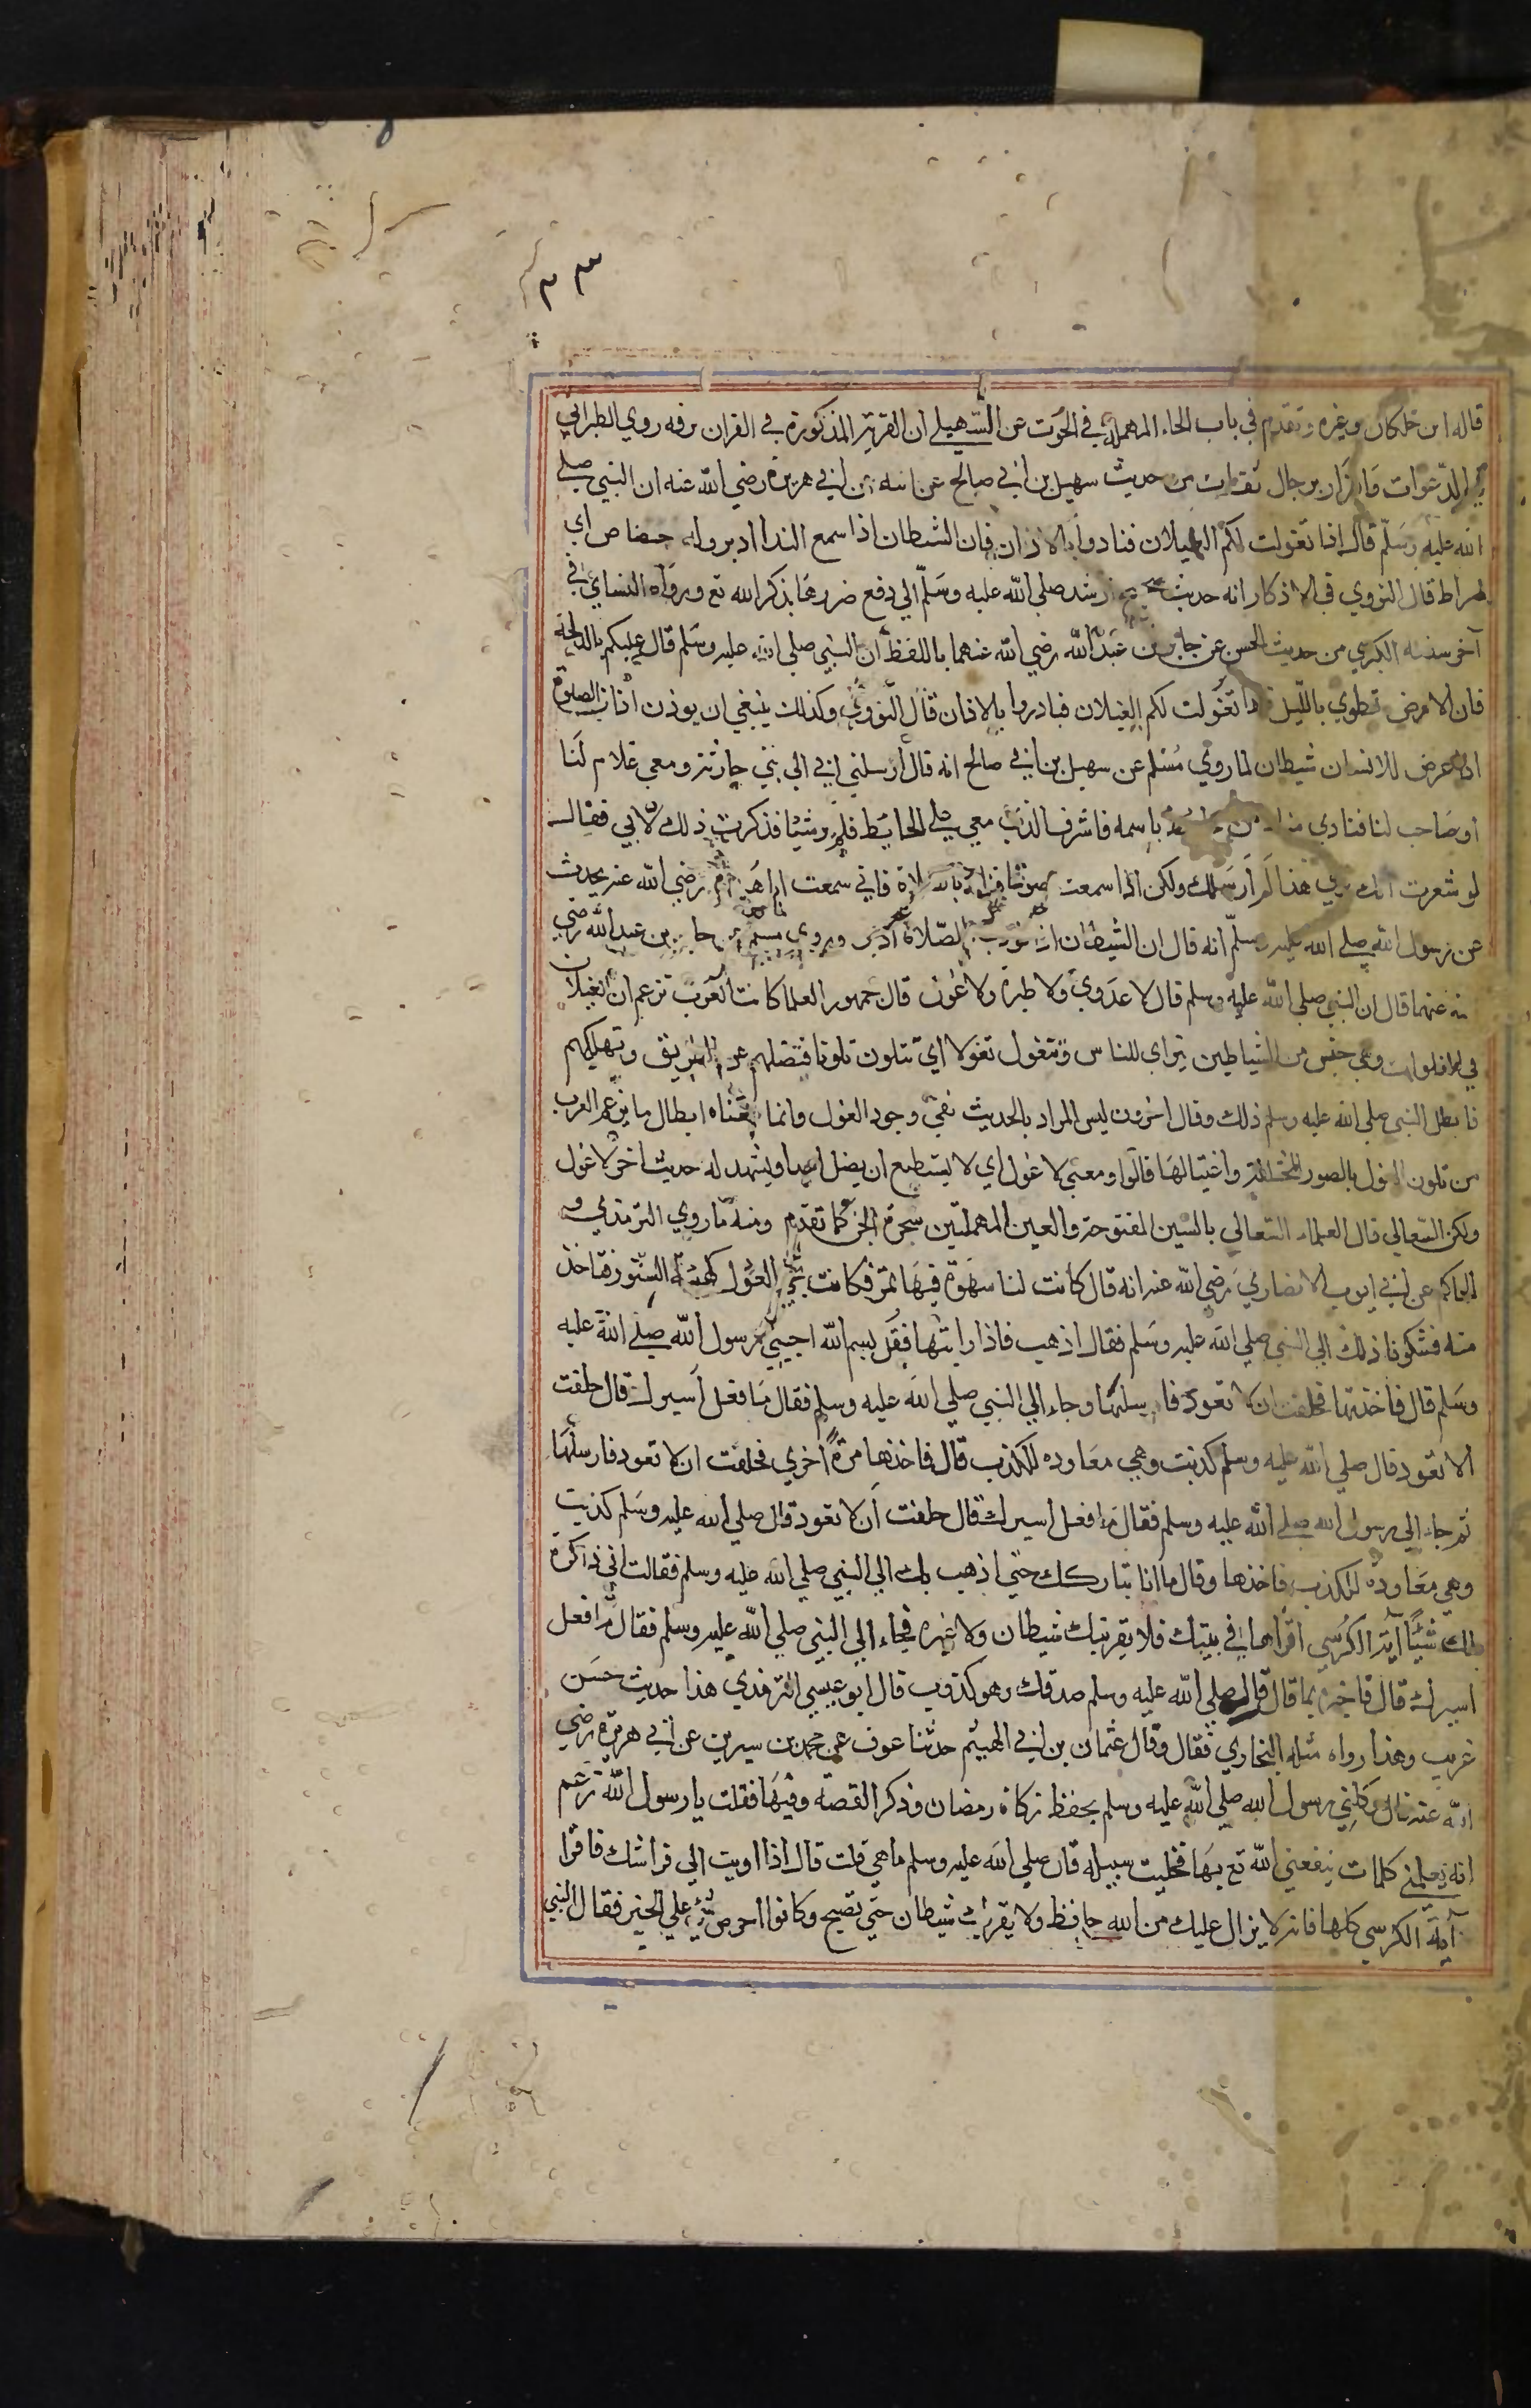 ٣٣
قاله ابن خلكان وغيره وتقدم في باب الحاء المهملة في الحوت عن السهيلي ان القرية المذكورة في القران برقه روي الطبراني
في الدعوات والبزار برجال ثقات من حديث سهيل بن ابي صالح عن ابيه عن ابي هريرة رضي الله عنه ان النبي صلي
الله عليه وسلم قال اذا تغولت لكم الغيلان فنادوا بالاذان فان الشيطان اذا سمع الندا ادبر وله حصاص اي
ضراط قال النووي في الاذكار انه حديث صحيح ارشد صلي الله عليه وسلم الي دفع ضررها بذكر الله تع ورواه النسائي في
آخر سننه الكبري من حديث الحسن عن جابر بن عبد الله رضي الله عنهما باللفظ ان النبي صلي الله عليه وسلم قال عليكم بالدلجة
فان الارض تطوي بالليل فاذا تغولت لكم الغيلان فبادروا بالاذان قال النووي وكذلك ينبغي ان يوذن اذان الصلوة
اذا عرض للانسان شيطان لما روي مسلم عن سهيل بن ابي صالح انه قال ارسلني ابي الي بني حارثة ومعي غلام لنا
او صاحب لنا فنادي مناد من باسمه فاشرف الذي معي علي الحايط فلم ير شيئا فذكرت ذلك لابي فقال
لو شعرت انك تري هذا لم ارسلك ولكن اذا سمعت صوتا فناد بالصلاة فاني سمعت ابا هريرة رضي الله عنه يحدث
عن رسول الله صلي الله عليه وسلم انه قال ان الشيطان اذا نودي بالصلاة ادبر وروي مسلم عن جابر بن عبد الله رضي
الله عنهما قال ان النبي صلي الله عليه وسلم قال لا عدوي ولا طيرة ولا غول قال جمهور العلما كانت العرب تزعم ان الغيلان
في الفلوات وهي جنس من الشياطين تتراي للناس وتتغول تغولا اي تتلون تلونا فتضلهم عن الطريق وتهلكهم
فابطل النبي صلي الله عليه وسلم ذلك وقال اخرون ليس المراد بالحديث نفي وجود الغول وانما معناه ابطال ما تزعم العرب
من تلون الغول بالصور المختلفة واغتيالها قالوا ومعني لا غول اي لا يستطيع ان يضل احدا ويشهد له حديث اخر لا غول
ولكن السعالي قال العلماء السعالي بالسين المفتوحة والعين المهملتين سحرة الجن كما تقدم ومنه ما روي الترمذي و
الحاكم عن ابي ايوب الانصاري رضي الله عنه انه قال كانت لنا سهوة فيها تمر فكانت تجي الغول كهيئة السنور فتاخذ
منه فشكونا ذلك الي النبي صلي الله عليه وسلم فقال اذهب فاذا رايتها فقل بسم الله اجيبي رسول الله صلي الله عليه
وسلم قال فاخذتها فحلفت ان لا تعود فارسلها وجاء الي النبي صلي الله عليه وسلم فقال ما فعل اسيرك قال حلفت
الا تعود قال صلي الله عليه وسلم كذبت وهي معاوده للكذب قال فاخذها مرة اخري فحلفت ان لا تعود فارسلها
ثم جاء الي رسول الله صلي الله عليه وسلم فقال ما فعل اسيرك قال حلفت ان لا تعود قال صلي الله عليه وسلم كذبت
وهي معاوده للكذب فاخذها وقال ما انا بتاركك حتي اذهب بك الي النبي صلي الله عليه وسلم فقالت اني ذاكرة
لك شيئا آية الكرسي اقراها في بيتك فلا يقربك شيطان ولا غيره فجاء الي النبي صلي الله عليه وسلم فقال ما فعل
اسيرك قال فاخبره بما قال قال صلي الله عليه وسلم صدقك وهو كذوب قال ابو عيسي الترمذي هذا حديث حسن
غريب وهذا رواه مثله البخاري فقال وقال عثمان بن ابي الهيثم حدثنا عوف عن محمد بن سيرين عن ابي هريرة رضي
الله عنه قال وكلني رسول الله صلي الله عليه وسلم بحفظ زكاة رمضان وذكر القصة وفيها فقلت يا رسول الله زعم
انه يعلمني كلمات ينفعني الله تع بها فخليت سبيله قال صلي الله عليه وسلم ما هي قلت قال اذا اويت الي فراشك فاقرا
آية الكرسي كلها فانه لا يزال عليك من الله حافظ ولا يقربك شيطان حتي تصبح وكانوا احرص شي علي الخير فقال النبي